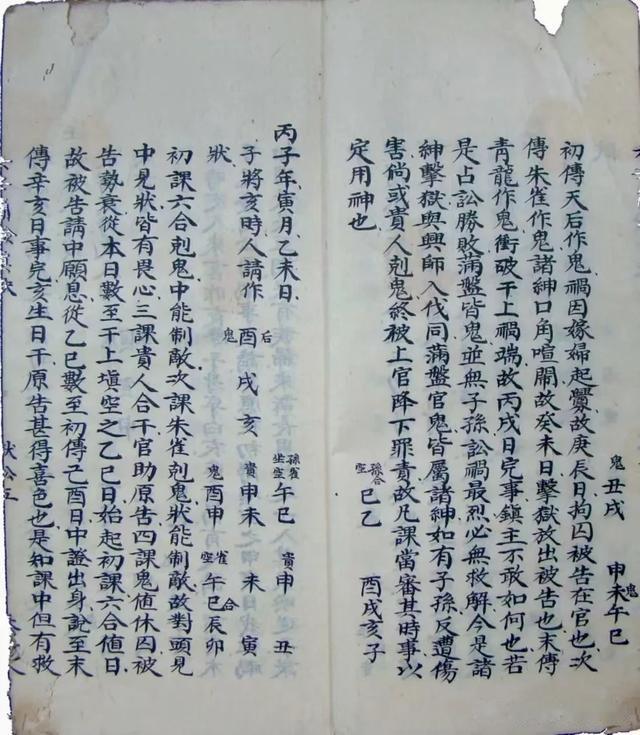 鬼 丑戌 申未午巳 鬼
初傳天后作鬼禍因嫁婦起釁故庚辰日拘囚被告在官也次
傳朱雀作鬼諸紳口角喧鬧故癸未日擊獄放出被告也末傳
青龍作鬼衝破干上禍端故丙戌日完事鎮主不敢如何也若
是占訟勝敗滿盤皆鬼並無子孫訟禍最烈必無救解今是諸
紳擊獄與興師入伐同滿盤官鬼皆屬諸紳如有子孫反遭傷
害倘或貴人剋鬼終被上官降下罪責故凡課當審其時事以
定用神也 孫合空 巳乙 酉戌亥子
丙子年寅月乙未日 孫雀坐空 午巳 貴 申丑
子將亥時人請作 后鬼 酉戌亥 貴 申未 未寅
狀 鬼 酉申 雀空 午巳 合 辰卯
初課六合剋鬼中能制敵次課朱雀剋鬼狀能制敵故對頭見
中見狀皆有畏心三課貴人合干官助原告四課鬼值休囚被
告勢衰從本日數至干上塡空之乙巳日始起初課六合值日
故被告請中願息從乙巳數至初傳己酉日中證出身說至末
傳辛亥日事完亥生日干原告甚得喜色也是知課中但有救